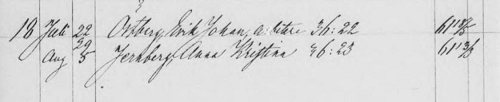 18 Juli 22 Ostberg, Erik Johan, a: betare 36: 22 61 11 3/8
29
Aug 5 Jernberg Anna Kristina 36: 23 61 11 3/8